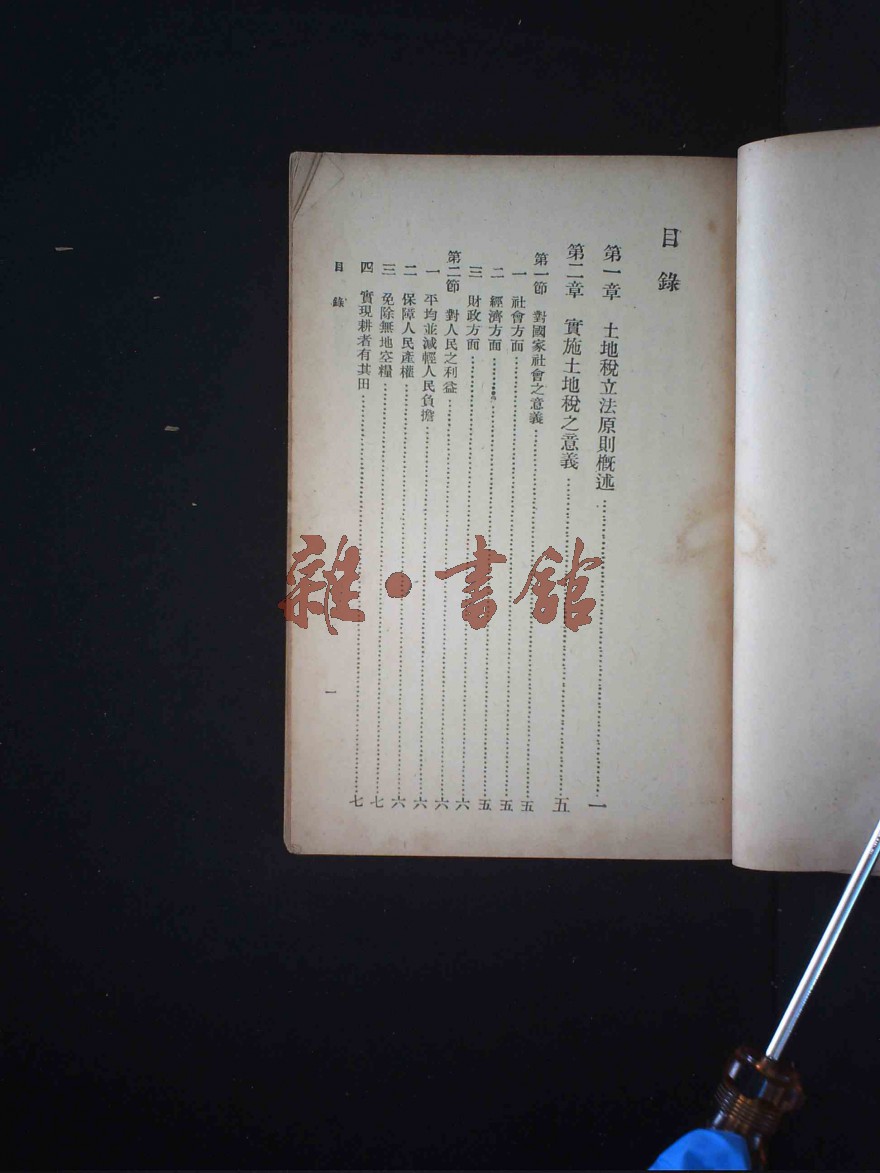 目錄
第一章 土地稅立法原則概述……一
第二章 實施土地稅之意義……五
第一節 對國家社會之意義……五
一 社會方面……五
二 經濟方面……五
三 財政方面……六
第二節 對人民之利益……六
一 平均並減輕人民負擔……六
二 保障人民產權……六
三 免除無地空糧……七
四 實現耕者有其田……七
目錄
一
雜·書館